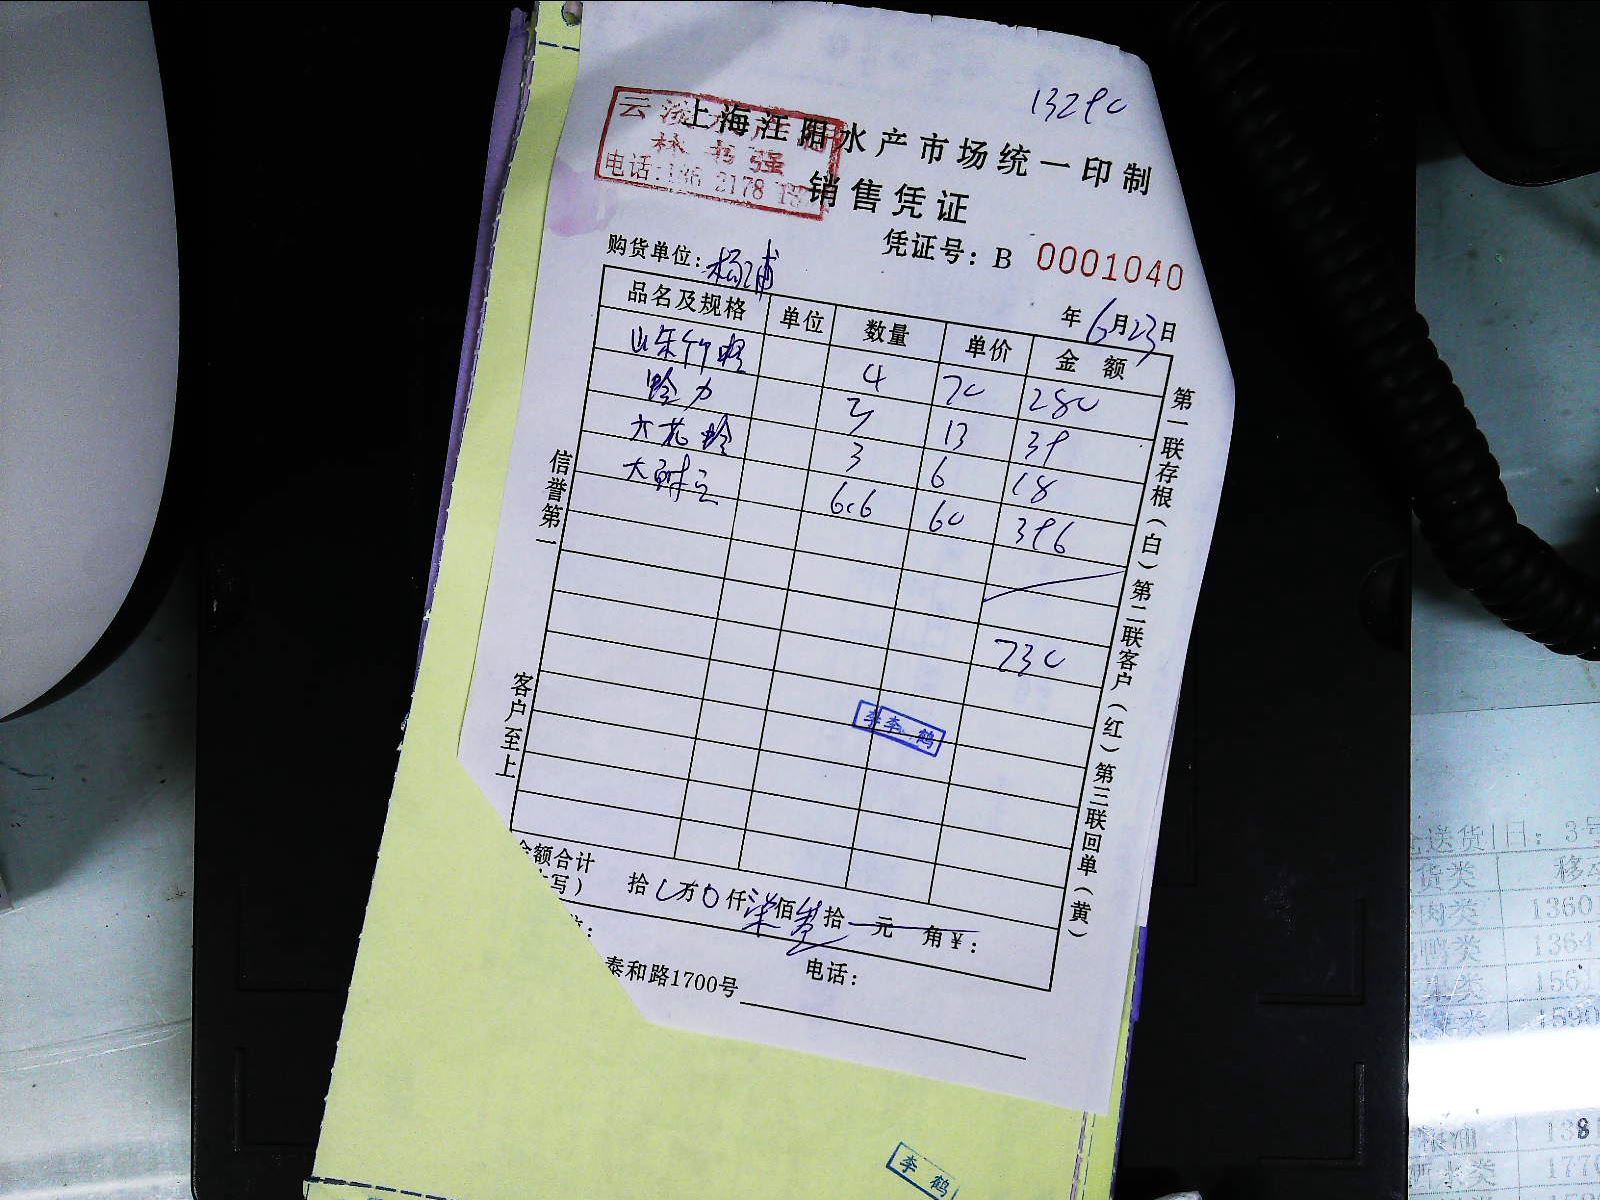 13290
上海江阳水产市场统一印制
销售凭证
林书强
电话:136 2178
凭证号: B 0001040
购货单位: 杨浦
年 6月23日
品名及规格 单位 数量 单价 金额
山东竹蛏 4 70 280
蛤力 3 13 39
六花蛤 3 6 18
大鲜 6.6 60 396
730
李 鹤
金额合计 拾 万 0 仟 柒 佰 叁 拾 元 角 ¥:
大写)
电话:
泰和路1700号
信誉第一
客户至上
第一联存根(白)第二联客户(红)第三联回单(黄)
李 鹤
送货 日: 3号
货类
肉类 1360
鸭类 1364
类 156
类 1590
类 177